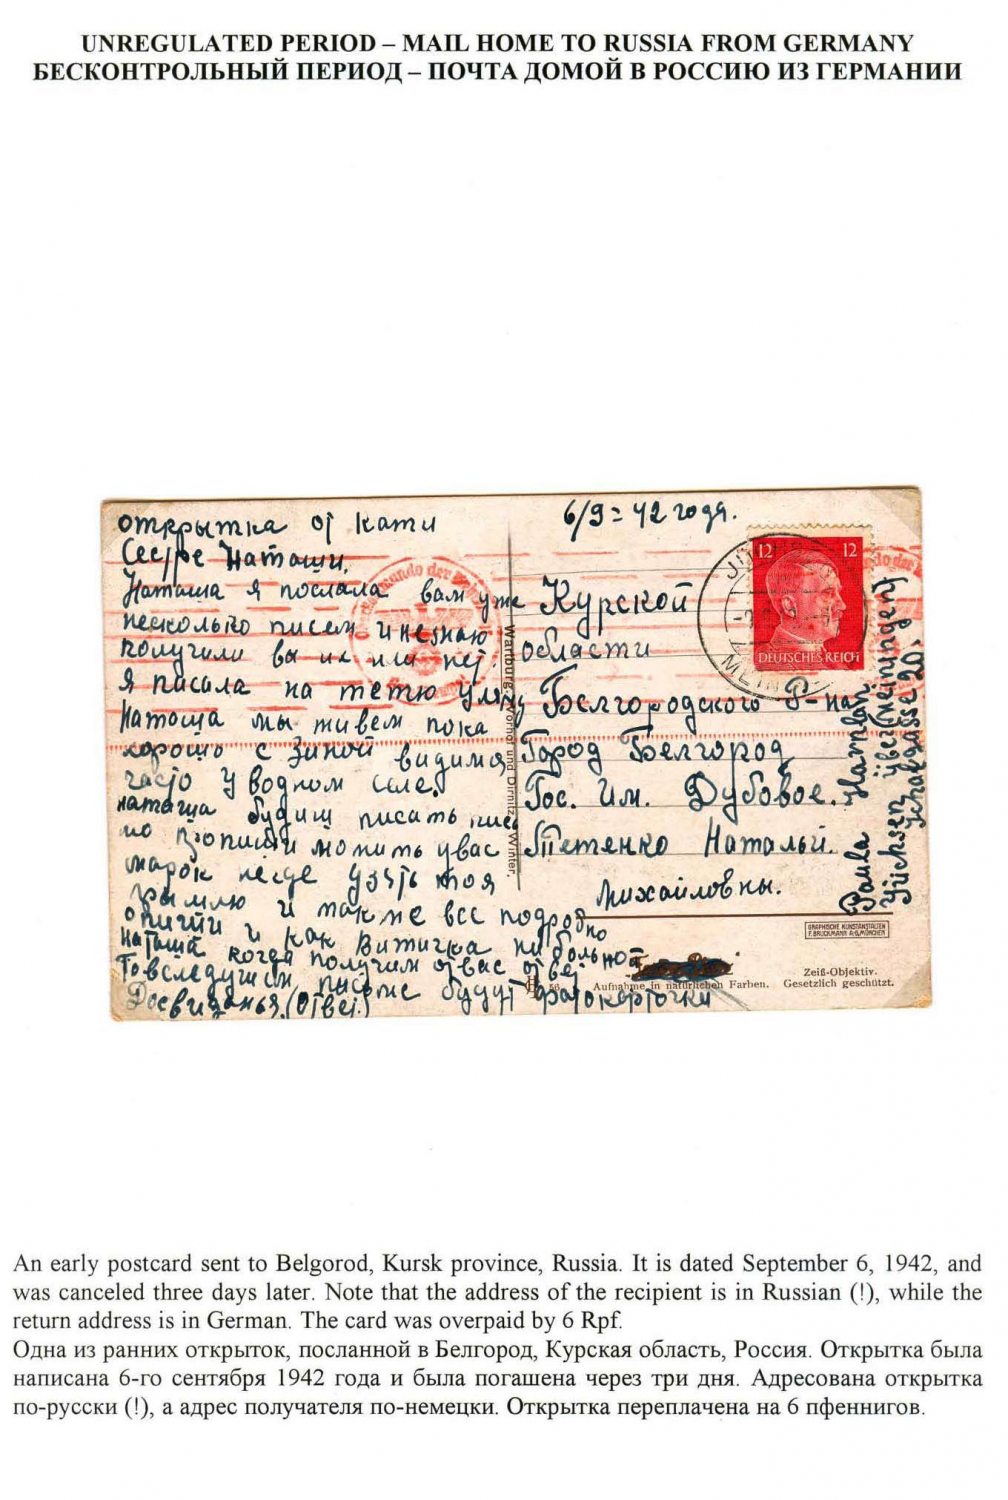 UNREGULATED PERIOD – MAIL HOME TO RUSSIA FROM GERMANY
БЕСКОНТРОЛЬНЫЙ ПЕРИОД – ПОЧТА ДОМОЙ В РОССИЮ ИЗ ГЕРМАНИИ
открытка от кати
Сестре Наташи.
Наташа я послала вам уже
несколько писем и незнаю
получили вы их или нет.
я писала на тетю уляну
Наташа мы живем пока
хорошо с Зиной видимся
часто у водном селе.
наташа будиш писать
марок негде узять
и также все подробно
опиши и как Витичка
Наташа когда получим отвас ответ
письме будут фотокарточки
Досвиданья. (Ответ.)
6/9= 42 года.
Курской
области
Белгородского Р-на
Город Белгород
Гос. Им. Дубовое.
Тетенко Натальи.
Михайловны.
12 12
DEUTSCHES REICH
Paula
Jüchsen
Wartburg. Vorhof und Dirnitz. Winter.
GRAPHISCHE KUNSTANSTALTEN
F. BRUCKMANN A-G. MÜNCHEN
Zeiß-Objektiv.
Aufnahme in natürlichen Farben. Gesetzlich geschützt.
An early postcard sent to Belgorod, Kursk province, Russia. It is dated September 6, 1942, and
was canceled three days later. Note that the address of the recipient is in Russian (!), while the
return address is in German. The card was overpaid by 6 Rpf.
Одна из ранних открыток, посланной в Белгород, Курская область, Россия. Открытка была
написана 6-го сентября 1942 года и была погашена через три дня. Адресована открытка
по-русски (!), а адрес получателя по-немецки. Открытка переплачена на 6 пфеннигов.